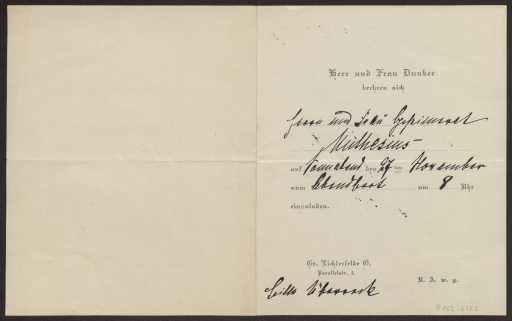 Herr und Frau Dunker
beehren sich
Herrn und Frau Geheimrat
Muthesius
auf Sonnabend den 27ten November
zum Abendbrot um 8 Uhr
einzuladen.
Gr. Lichterfelde O.
Parallelstr. 1.
U. A. w. g.